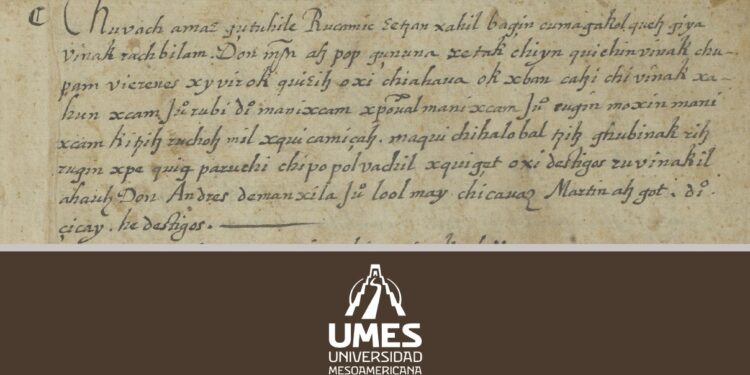 Chuvach amaz gutuhile Rucamic Zetzan xahil bagin cumagakol queh giya
vinak rachbilam. Don mīn ah pop gununa xetak chiyn quiehin vinak chu
pam vierenes xyvir ok quizih oxi chiahaua ok xban cahi chi vinak xa
hun xcam Juº rubi dº manixcam xpoual manixcam Juº rugin moxin mani
xcam kitzih ruchoh mil xquicamiçah. maqui chihalobal tzih ghubinak rih
rugin xpe quig paruchi chipopol vachil xquiget oxi destigos ruvinakil
ahauh Don Andres demanxila Juº lool may chicauaz Martin ah got. dº
çicay. he destigos.
UMES
UNIVERSIDAD
MESOAMERICANA